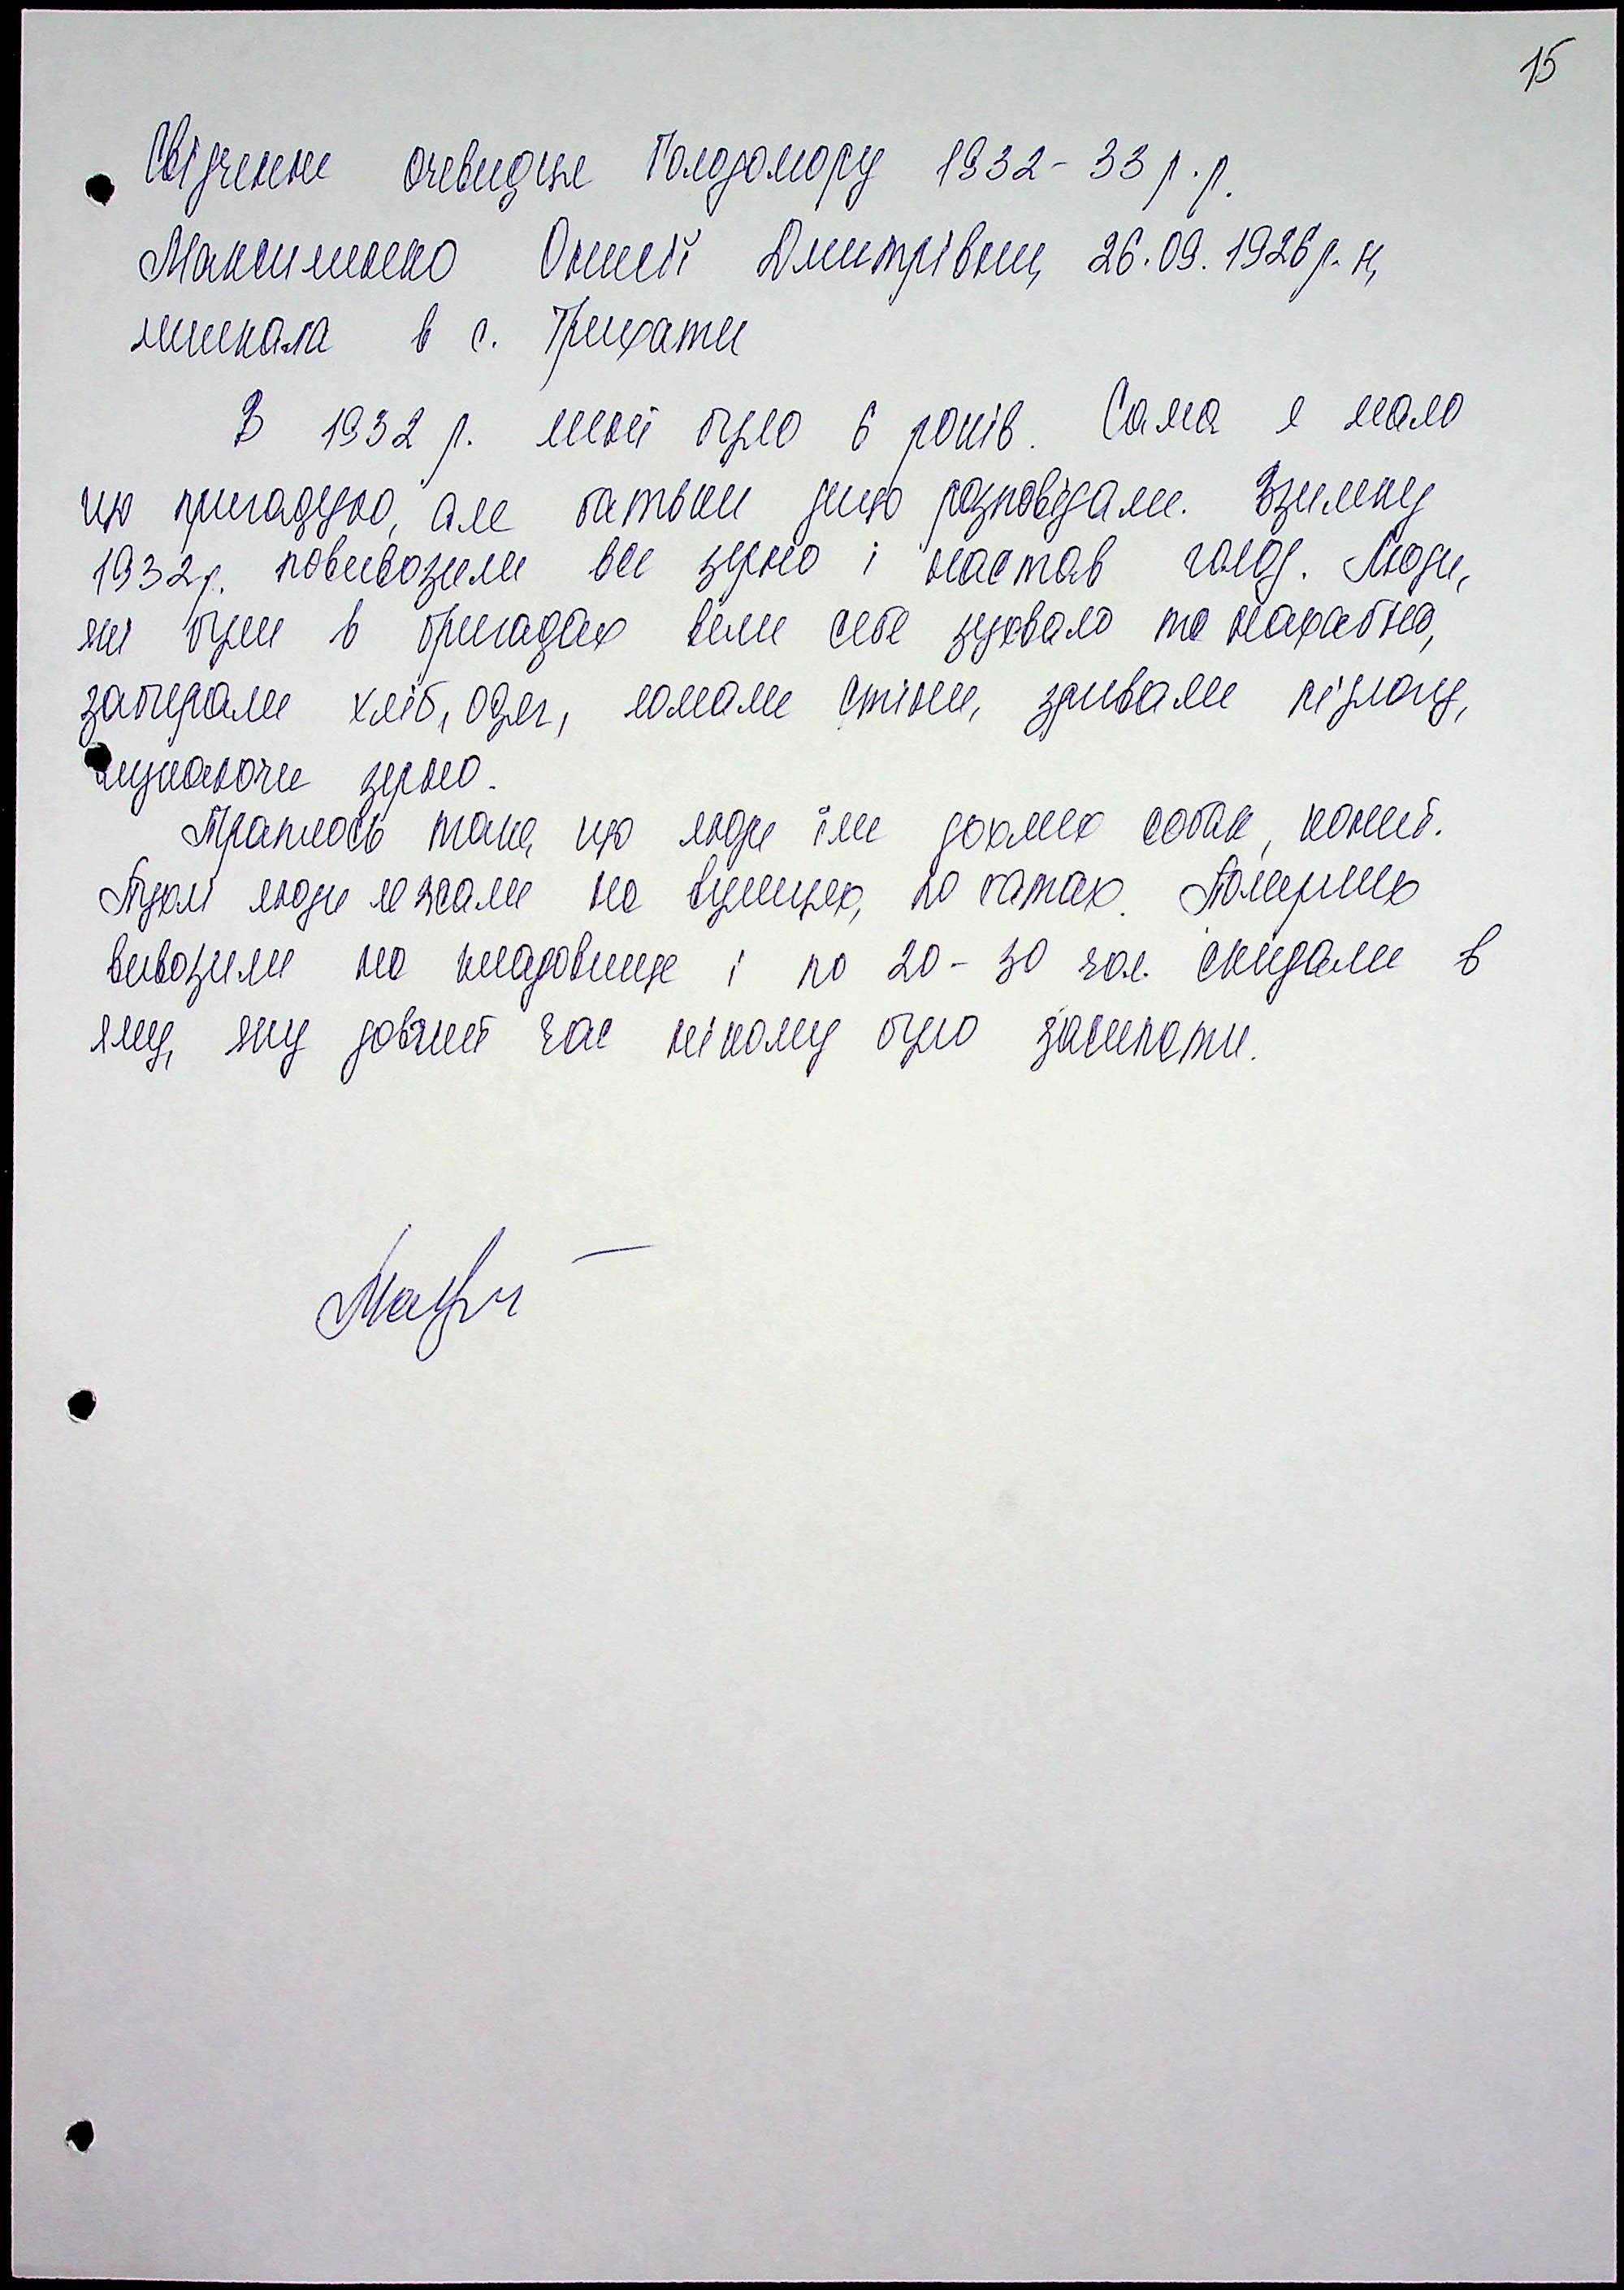 15
Свідчення очевидця Голодомору 1932-33 р.р.
Максименко Дмитрівни, 26.09.1926 р.н,
мешкала в с. Трихати
В 1932 р. мені було 6 років. Сама я мало
що пригадую, але батьки дещо розповідали. Взимку
1932р. повивозили все зерно і настав голод. Люди,
які були в бригадах вели себе зухвало та нахабно,
забирали хліб, одяг, ломали стіни, зривали підлогу,
шукаючи зерно.
Траплось таке, що люди їли дохлих собак, коней.
Пухлі люди лежали на вулицях, по хатах. Померших
вивозили на кладовище і по 20-30 чол. скидали в
яму, яку довгий час нікому було засипати.